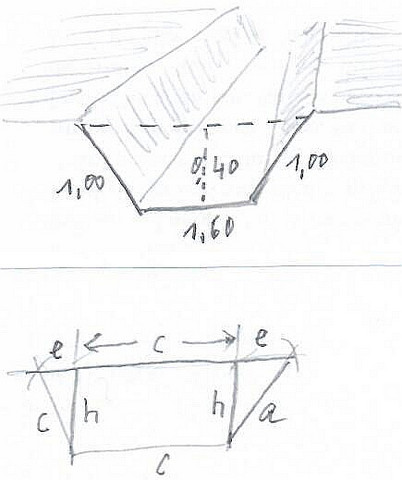 1,00 0,40 1,00
1,60
e c e
c h h a
c